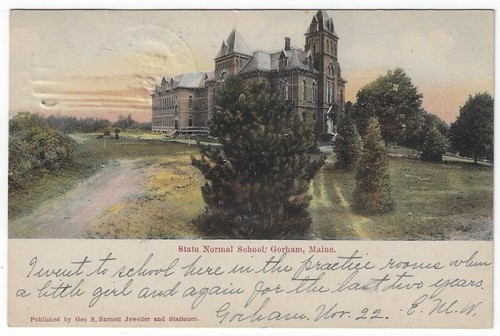 State Normal School, Gorham, Maine.
I went to school here in the practice rooms when
a little girl and again for the last two years.
Gorham, Nov. 22. E.M.W.
Published by Geo S. Burnell Jeweller and Stationer.